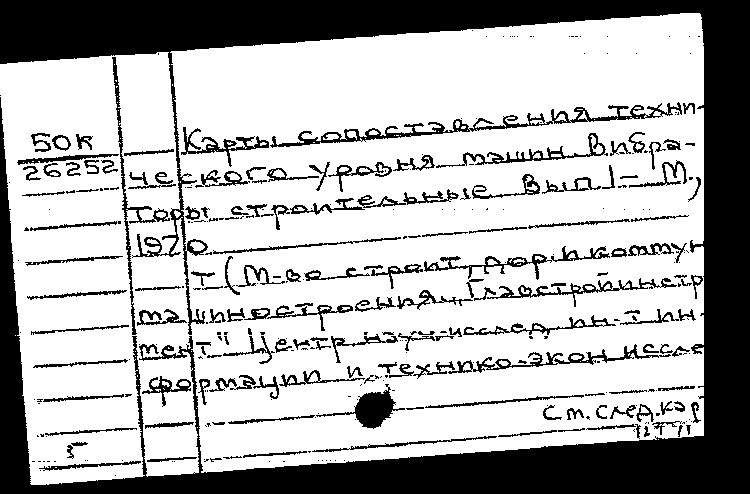 50К
26252
Карты сопоставления техни-
ческого уровня машин Вибра-
торы строительные Вып 1- М.,
1970
т (М-во строит, дор. и коммун
машиностроения „Главстройинстр
мент" Центр науч-исслед. ин-т ин-
формации и технико-экон иссле
См. след. кар
5